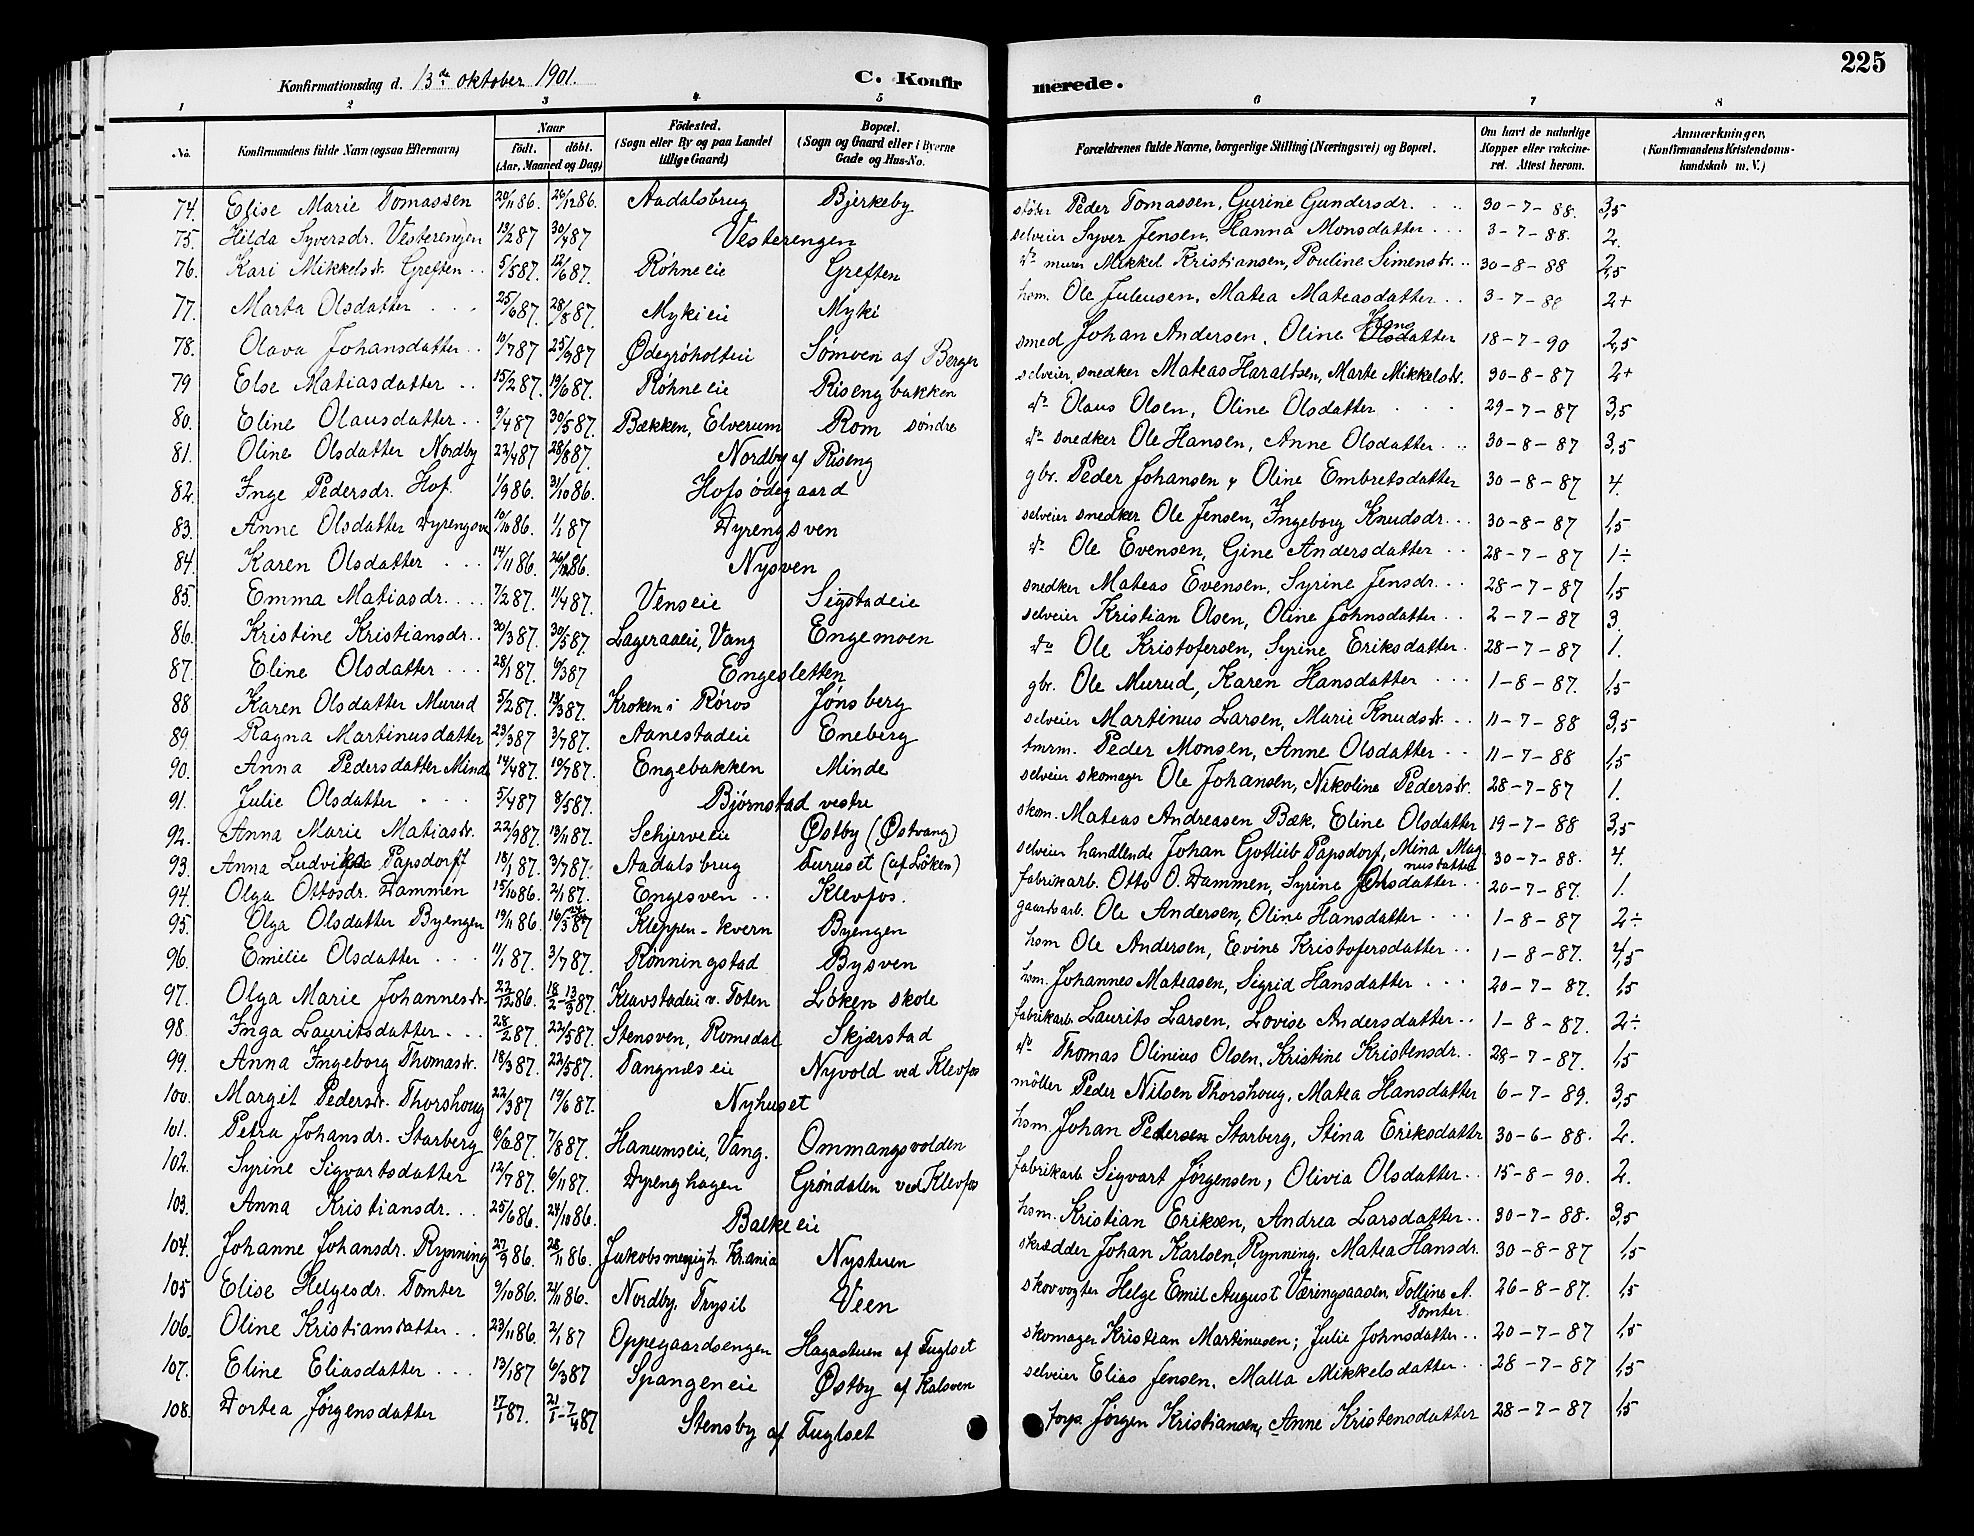 225
Konfirmationsdag d. 13de oktober 1901. C. Konfirmerede.
1 2 3 4 5 6 7 8
No. Konfirmandens fulde Navn (ogsaa Efternavn) Naar födt. döbt. (Aar, Maaned og Dag) Födested. (Sogn eller By og paa Landet tillige Gaard) Bopæl. (Sogn og Gaard eller i Byerne Gade og Hus-No. Forældrenes fulde Navne, borgerlige Stilling (Næringsvei) og Bopæl. Om havt de naturlige Kopper eller vakcineret. Attest herom. Anmærkninger, (Konfirmandens Kristendomskundskab m. V.)
74. Elise Marie Tomassen 20/11 86. 26/12 86. Aadalsbrug Bjerkeby Peder Tomassen, Gurine Gundersdr. 30-7-88. 3,5
75. Hilda Syversdr. Vesterengen 19/2 87 30/4 87 Vesterengen selveier Syver Jensen, Hanna Monsdatter 3-7-88. 2.
76. Kari Mikkelsdr. Greften 5/5 87. 12/6 87. Røhneeie Greften do murer Mikkel Kristiansen, Pouline Simensdr. 30-8-88 2,5
77. Marta Olsdatter 25/6 87. 28/8 87. Mykieie Myki hsm. Ole Juleusen, Matea Mateasdatter 3-7-88 2+
78. Olava Johansdatter 10/7 87 25/9 87 Ødegrøholteie Sømoen af Berger smed Johan Andersen, Oline Hansdatter 18-7-90 2,5
79 Else Matiasdatter 15/2 87. 19/6 87. Røhneeie Risengbakken selveier, snedker Mateas Haraltsen, Marte Mikkelsdr. 30-8-87 2+
80. Eline Olausdatter 9/4 87 30/5 87. Bækken, Elverum Rom søndre do Olaus Olsen, Oline Olsdatter 29-7-87 3,5
81. Oline Olsdatter Nordby 22/4 87 28/8 87. Nordby af Riseng do snedker Ole Hansen, Anne Olsdatter 30-8-87 3,5
82. Inge Pedersdr. Hof. 1/9 86. 31/10 86. Hofsødegaard gbr. Peder Johansen & Oline Embretsdatter 30-8-87 4.
83. Anne Olsdatter Dyrengsve 10/10 86. 1/1 87 Dyrengsven selveier snedker Ole Jensen, Ingeborg Knudsdr. 30-8-87 1,5
84. Karen Olsdatter 14/11 86. 26/12 86. Nysven do Ole Evensen, Gine Andersdatter 28-7-87 1÷
85. Emma Matiasdr. 7/2 87. 11/4 87. Venseie Sigstadeie snedker Mateas Evensen, Syrine Jensdr. 28-7-87 1,5
86. Kristine Kristiansdr. 30/3 87. 30/5 87. Lageraaeie, Vang Engemoen selveier Kristian Olsen, Oline Johnsdatter 2-7-87 3.
87. Eline Olsdatter 28/1 87. 6/3 87 Engesletten do Ole Kristofersen, Syrine Eriksdatter 28-7-87 1.
88 Karen Olsdatter Murud 5/2 87. 13/3 87. Kroken i Røros Jønsberg gbr. Ole Murud, Karen Hansdatter 1-8-87. 1,5
89. Ragna Martinusdatter 23/3 87 3/7 87. Aanestadeie Eneberg selveier Martinus Larsen, Marie Knudsdr. 11-7-88 3,5
90. Anna Pedersdatter Minde 14/4 87. 10/7 87. Engebakken Minde tmrm. Peder Monsen, Anne Olsdatter 11-7-88 1,5
91. Julie Olsdatter 5/4 87 8/5 87. Bjørnstad vestre selveier skomager Ole Johansen, Nikoline Pedersdr. 28-7-87 1.
92. Anna Marie Matiasdr. 22/9 87. 13/11 87. Schjerveeie Østby (Østvang) skom. Mateas Andreasen Bæk, Eline Olsdatter 19-7-88 3,5
93. Anna Ludvikka Papsdorff 18/1 87. 3/7 87. Aadalsbrug Furuset (af Løken) selveier handlende Johan Gotlieb Papsdorf, Mina Magnusdatter 30-7-88. 4.
94. Olga Ottosdr. Dammen 15/10 86. 2/1 87. Engesven Klevfos. fabrikarb. Otto O. Dammen, Syrine Johsdatter 20-7-87. 1.
95. Olga Olsdatter Byengen 19/11 86. Kleppen-kvern Byengen gaardsarb. Ole Andersen, Oline Hansdatter 1-8-87 2÷
96. Emilie Olsdatter 11/1 87. 3/7 87. Rønningstad Bysven hsm Ole Andersen, Evine Kristofersdatter 1-8-87. 4,5
97. Olga Marie Johannesdr. 22/12 86. 18/2-13/3 87. Klavstadeie v. Toten Løken skole hsm. Johannes Mateasen, Sigrid Hansdatter 20-7-87. 1,5
98. Inga Lauritsdatter 28/2 87. 22/5 87. Stensven, Romedal Skjærstad fabrikarb. Laurits Larsen, Lovise Andersdatter 1-8-87. 2÷
99. Anna Ingeborg Thomasdr. 18/3 87. 22/5 87. Tangnæseie Nyvold ved Klevfos do Thomas Olinius Olsen, Kristine Kristensdr. 28-7-87. 1,5
100. Margit Pedersdr. Thorshoug 22/3 87 19/6 87. Nyhuset möller Peder Nilsen Thorshoug, Matea Hansdatter 6-7-89. 3,5
101. Petra Johansdr. Starberg 6/6 87. 7/8 87. Hanumseie, Vang. Ommangsvolden hsm. Johan Pedersen Starberg, Stina Eriksdattr 30-6-88. 2.
102. Syrine Sigvartsdatter 12/7 87. 6/11 87. Dyrenghagen Grøndalen ved Klevfos fabrikarb Sigvart Jørgensen, Olivia Olsdatter 15-8-90. 2.
103. Anna Kristiansdr. 25/6 86. 24/10 86. Balkeeie hsm. Kristian Eriksen, Andrea Larsdatter 30-7-88. 3,5
104. Johanne Johansdr. Rynning 27/9 86. 28/11 86. Jakobsmenigh. Kr.ania Nystuen skrædder Johan Karlsen Rynning, Matea Hansdr. 30-8-87 1,5
105 Elise Helgesdr. Tomter 9/10 86. 21/11 86. Nordby, Trysil Veen skovvogter Helge Emil August Væringsaasen, Tolline A. Tomter 26-8-87. 1,5
106. Oline Kristiansdatter 23/11 86. 2/1 87 Oppegaardsengen Hagastuen af Fuglset skomager Kristian Martinusen; Julie Johnsdatter 20-7-87 1,5
107. Eline Eliasdatter 13/1 87 6/3 87 Spangeneie Østby af Kalsven selveier Elias Jensen, Malla Mikkelsdatter 28-7-87 1,5
108. Dortea Jørgensdatter 17/1 87. 21/1-7/4 87 Stensby af Fuglset forp. Jørgen Kristiansen, Anne Kristensdatter 28-7-87 1,5